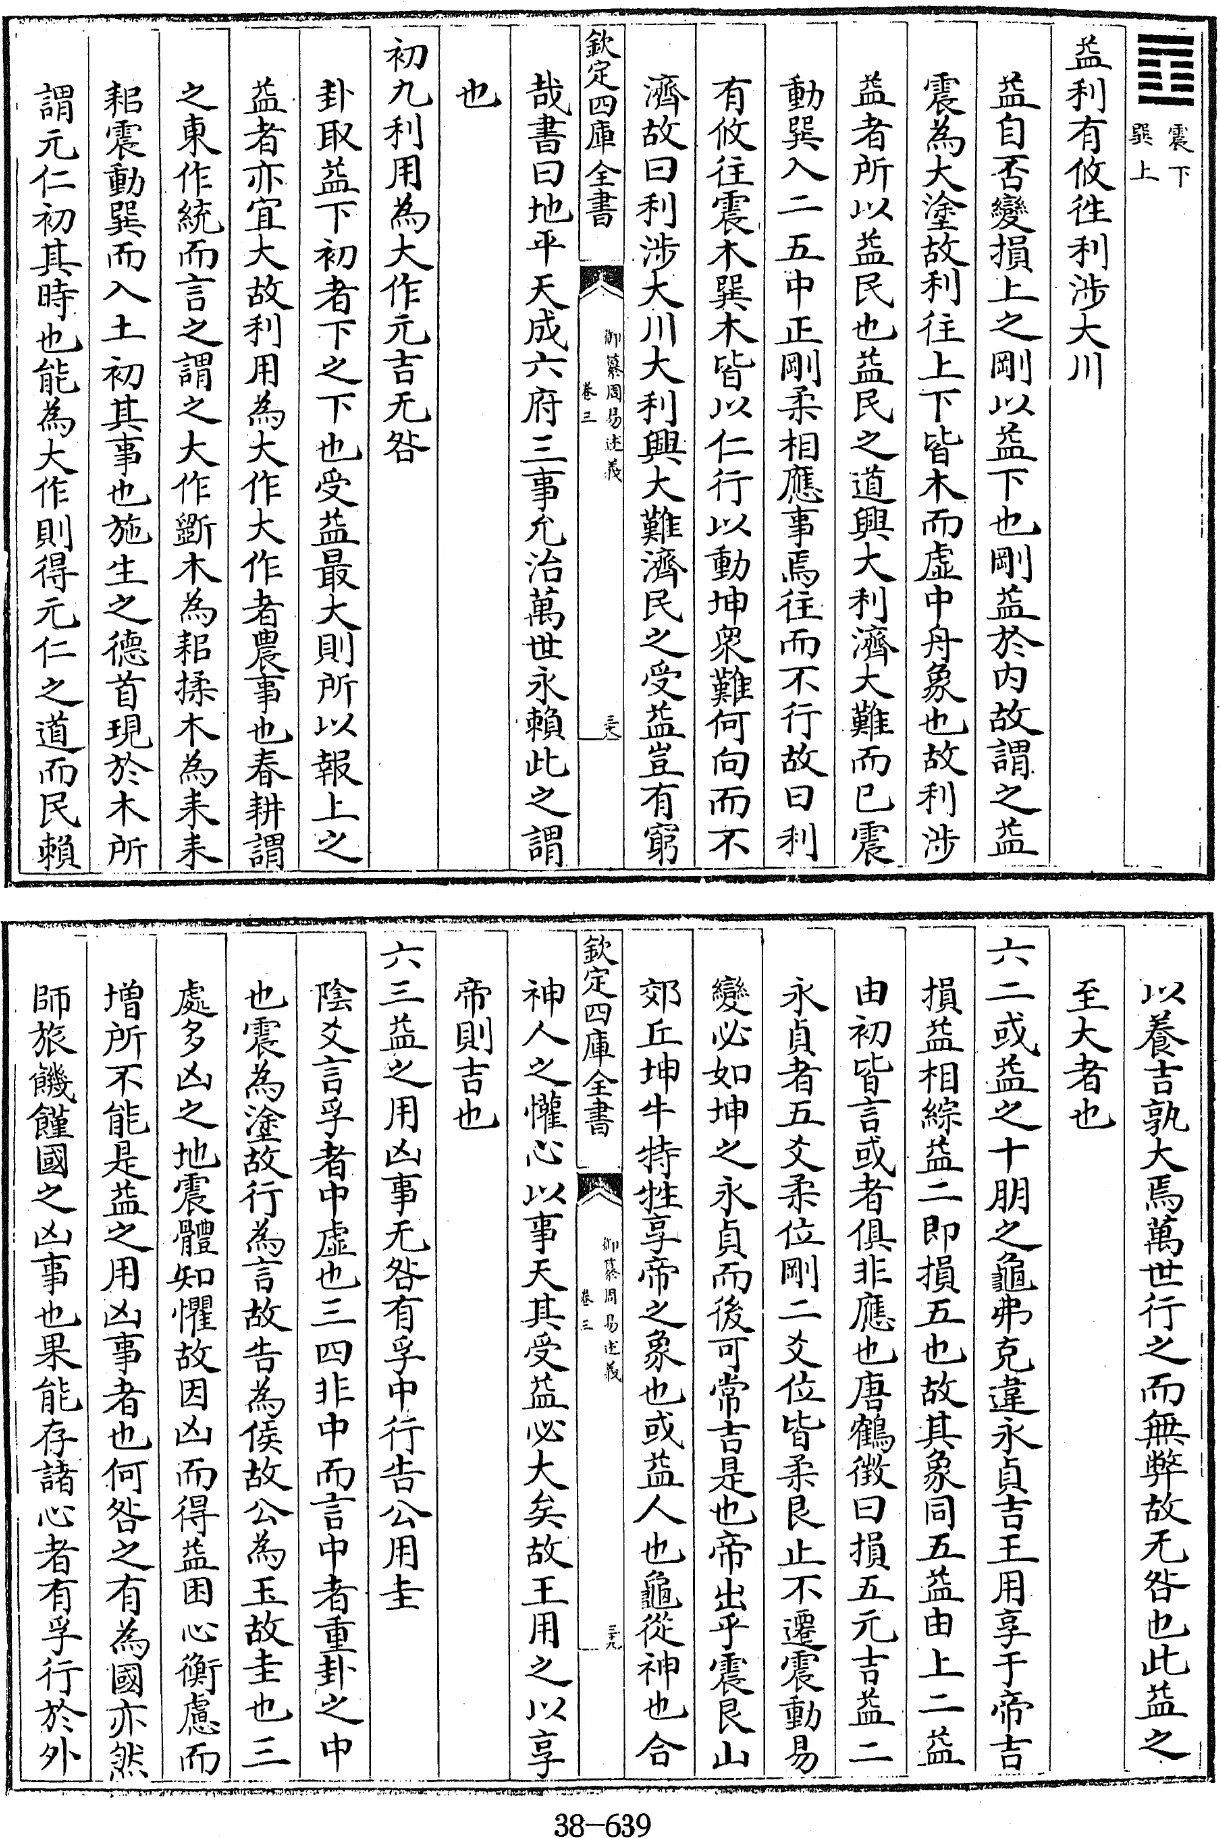 ䷩震下
巽上
益利有攸往利涉大川
益自否變損上之剛以益下也剛益於内故謂之益
震為大塗故利往上下皆木而虛中舟象也故利涉
益者所以益民也益民之道興大利濟大難而已震
動巽入二五中正剛柔相應事焉往而不行故曰利
有攸往震木巽木皆以仁行以動坤衆難何向而不
濟故曰利涉大川大利興大難濟民之受益豈有窮
欽定四庫全書
御纂周易述義
卷三
三八
哉書曰地平天成六府三事允治萬世永賴此之謂
也
初九利用為大作元吉无咎
卦取益下初者下之下也受益最大則所以報上之
益者亦宜大故利用為大作大作者農事也春耕謂
之東作統而言之謂之大作斵木為耜揉木為耒耒
耜震動巽而入土初其事也施生之德首現於木所
謂元仁初其時也能為大作則得元仁之道而民賴
以養吉孰大焉萬世行之而無弊故无咎也此益之
至大者也
六二或益之十朋之龜弗克違永貞吉王用享于帝吉
損益相綜益二即損五也故其象同五益由上二益
由初皆言或者俱非應也唐鶴徴曰損五元吉益二
永貞者五爻柔位剛二爻位皆柔艮止不遷震動易
變必如坤之永貞而後可常吉是也帝出乎震艮山
郊丘坤牛特牲享帝之象也或益人也龜從神也合
欽定四庫全書
御纂周易述義
卷三
三九
神人之懽心以事天其受益必大矣故王用之以享
帝則吉也
六三益之用凶事无咎有孚中行告公用圭
陰爻言孚者中虛也三四非中而言中者重卦之中
也震為塗故行為言故告為侯故公為玉故圭也三
處多凶之地震體知懼故因凶而得益困心衡慮而
増所不能是益之用凶事者也何咎之有為國亦然
師旅饑饉國之凶事也果能存諸心者有孚行於外
38-639